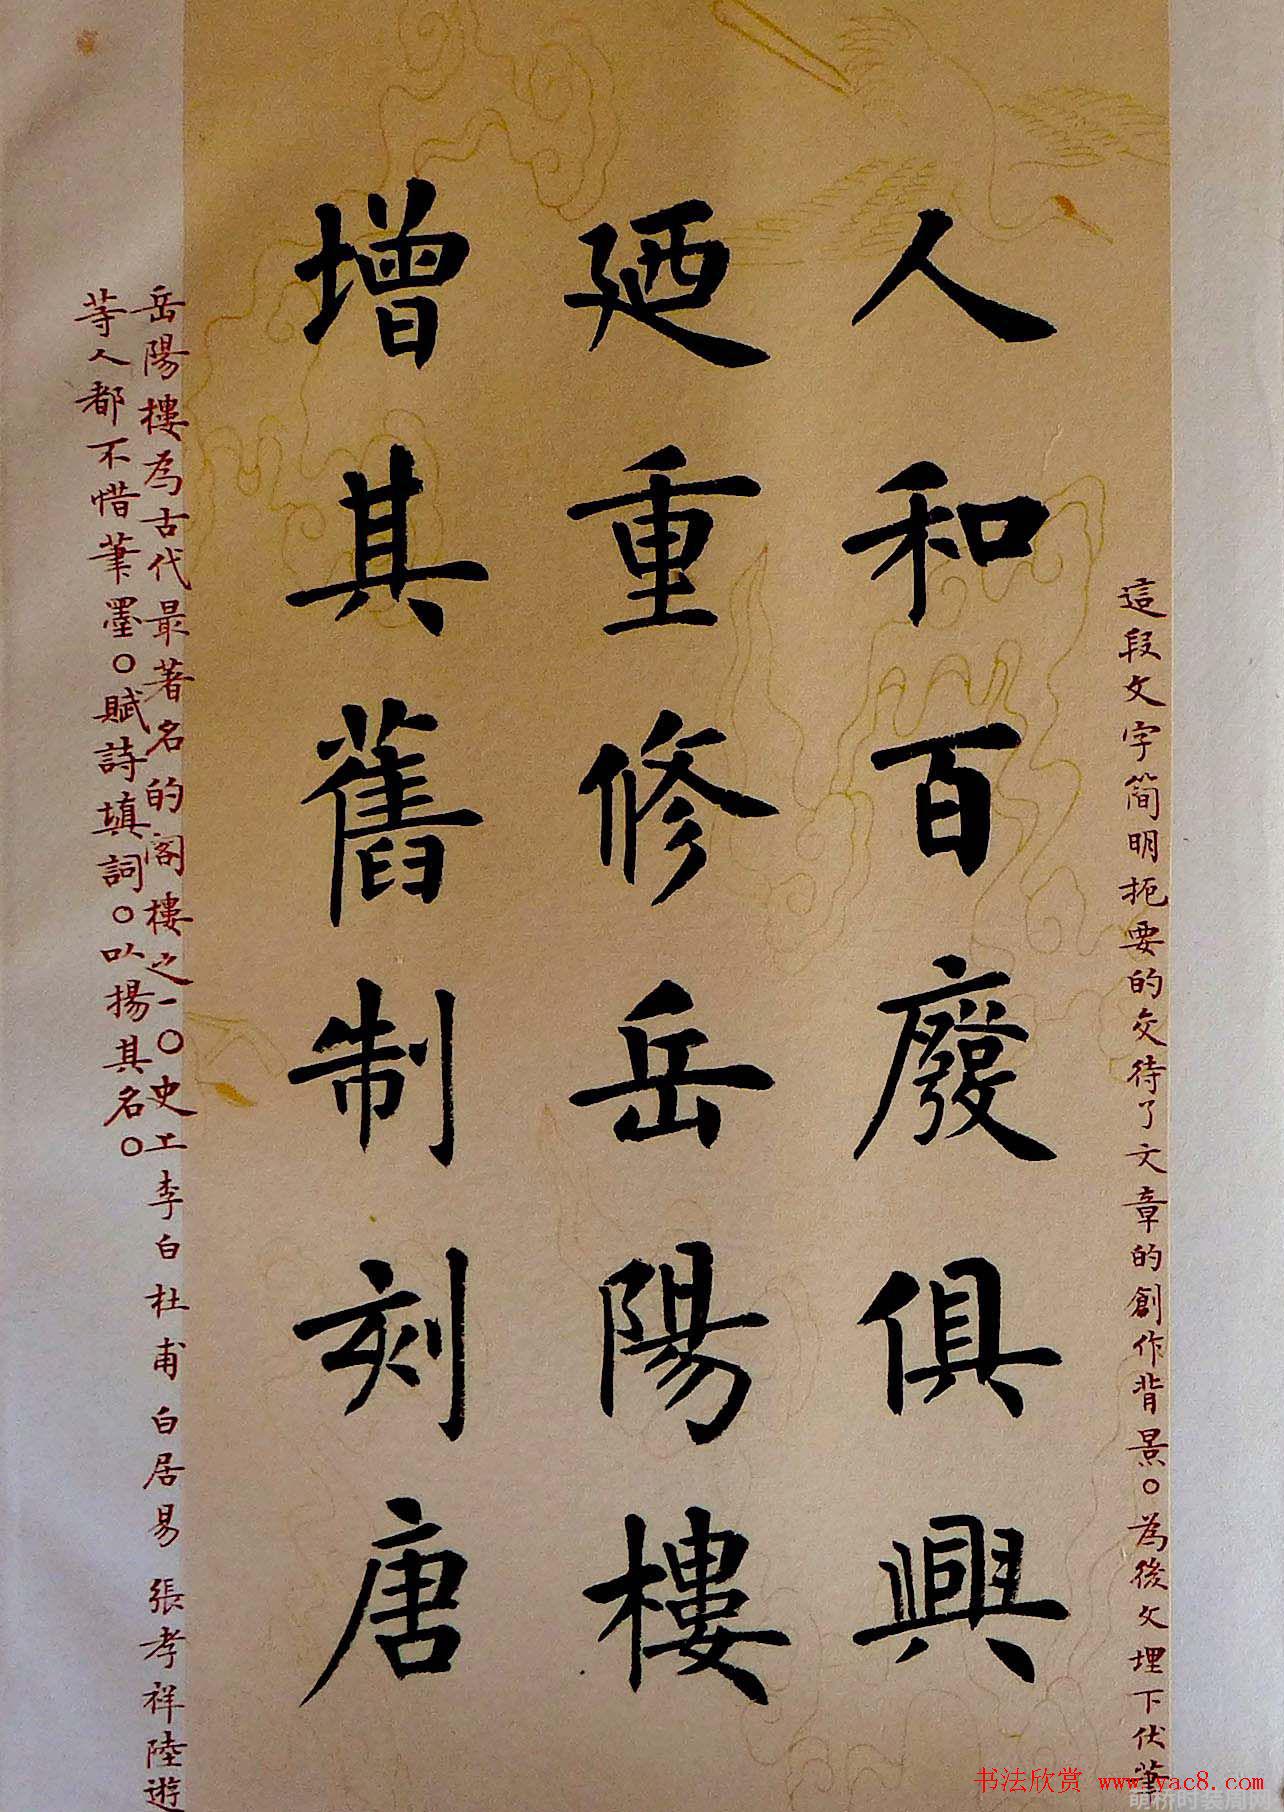 這段文字简明扼要的交待了文章的創作背景。為後文埋下伏筆
人和百廢俱興
廼重修岳陽樓
增其舊制刻唐
岳陽樓為古代最著名的阁樓之一。史上李白杜甫白居易張孝祥陸遊
等人都不惜筆墨。賦詩填詞。以揚其名。
书法欣赏 www.yac8.com
萌桥时装周网